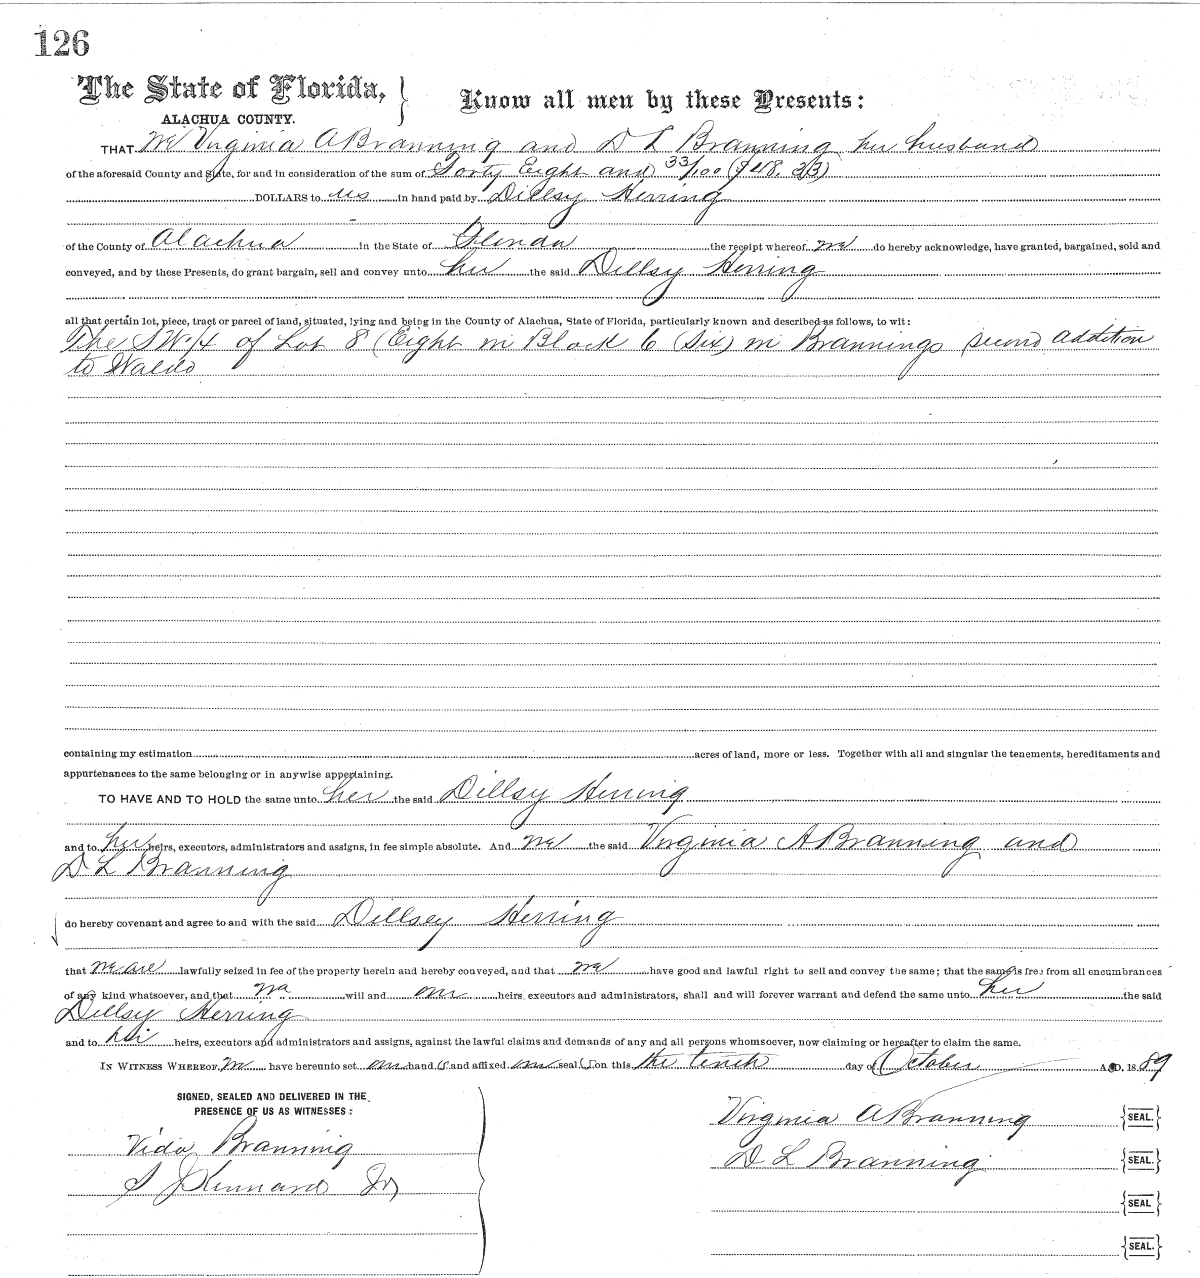 126
The State of Florida,
ALACHUA COUNTY.
Know all men by these Presents:
THAT We Virginia A Branning and D L Branning her husband
of the aforesaid County and State, for and in consideration of the sum of Forty Eight and 33/100 ($48.33)
DOLLARS to us in hand paid by Dillsy Herring
of the County of Alachua in the State of Florida the receipt whereof we do hereby acknowledge, have granted, bargained, sold and
conveyed, and by these Presents, do grant bargain, sell and convey unto her the said Dillsy Herring
all that certain lot, piece, tract or parcel of land, situated, lying and being in the County of Alachua, State of Florida, particularly known and described as follows, to wit:
The SW 1/4 of Lot 8 (Eight in Block 6 (Six) in Brannings second addition
to Waldo
containing my estimation acres of land, more or less. Together with all and singular the tenements, hereditaments and
appurtenances to the same belonging or in anywise appertaining.
TO HAVE AND TO HOLD the same unto her the said Dillsy Herring
and to her heirs, executors, administrators and assigns, in fee simple absolute. And we the said Virginia A Branning and
D L Branning
do hereby covenant and agree to and with the said Dillsey Herring
that we are lawfully seized in fee of the property herein and hereby conveyed, and that we have good and lawful right to sell and convey the same; that the same is free from all encumbrances
of any kind whatsoever, and that we will and our heirs, executors and administrators, shall and will forever warrant and defend the same unto her the said
Dillsy Herring
and to her heirs, executors and administrators and assigns, against the lawful claims and demands of any and all persons whomsoever, now claiming or hereafter to claim the same.
IN WITNESS WHEREOF, we have hereunto set our hand s and affixed our seal s on this the tenth day of October A. D. 1889
SIGNED, SEALED AND DELIVERED IN THE
PRESENCE OF US AS WITNESSES:
Virginia A Branning SEAL.
Vida Branning
D L Branning SEAL.
S J Kennard Jr
SEAL
SEAL.